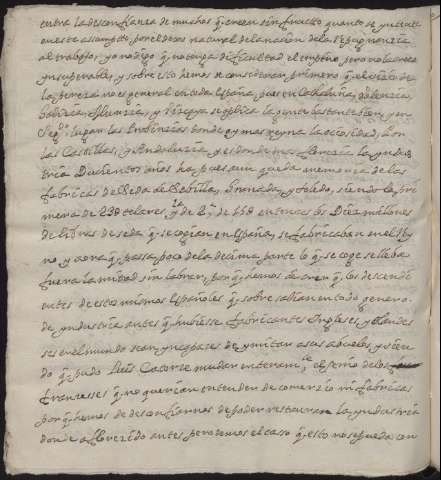 entra la desconfianza de muchos q. creen sin fructo quanto se yntente
en este assumpto, por el deseo natural de la nacion de la repugnanzia
al trabajo; yo no digo q. no tenga dificultad el empeño, pero no la creo
ynsuperable, y sobre esto hemos de considerar, primero q. el vicio de
la pereza no es general en toda España, pues en Cathaluña, Valenzia,
Galizia, Murzia, y Vizcaya se aplica la gente bastante bien
Seg.do las Prouincias donde oy mas reyna la ociosidad, son
las Castillas, y Andaluzia, y es donde mas florecia la yndus
tria Duzientos años ha, pues aun queda memoria de las
fabricas de Seda de Sebilla, Granada, y Toledo, siendo la pri
mera de telares, y la de 2.a de entonces los Diez millones
de libras de seda q. se cogian en España, se fabricaban en el Rey
no, y aora q. passa poco de la decima parte lo q. se coge se lleba
fuera la mitad sin labrar, porq. hemos de creer q. los descendi
entes de estos mismos Españoles q. sobresalian en todo genero
de yndustria antes q. hubiesse fabricantes Yngleses, y Olandes
ses en el mundo sean yncapaces de ymitar a sus abuelos, y vien
do q. pudo Luis Catorze mudar enteram.te el genio de los
Franzesses q. no querian entender de comerzio ni fabricas
porq. hemos de desconfiarnos de poder restaurar la yndustria
donde a florezido antes pero demos el caso q. esto no se pueda con